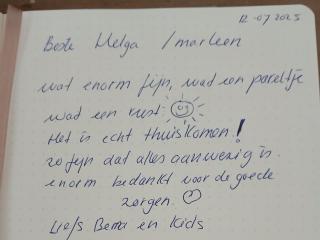 12-07-2025
Beste Helga / marleen
wat enorm fijn, wad een pareltje
wad een rust
Het is echt thuiskomen!
zo fijn dat alles aanwezig is.
enorm bedankt voor de goede
zorgen. ♡
Liefs Berna en kids